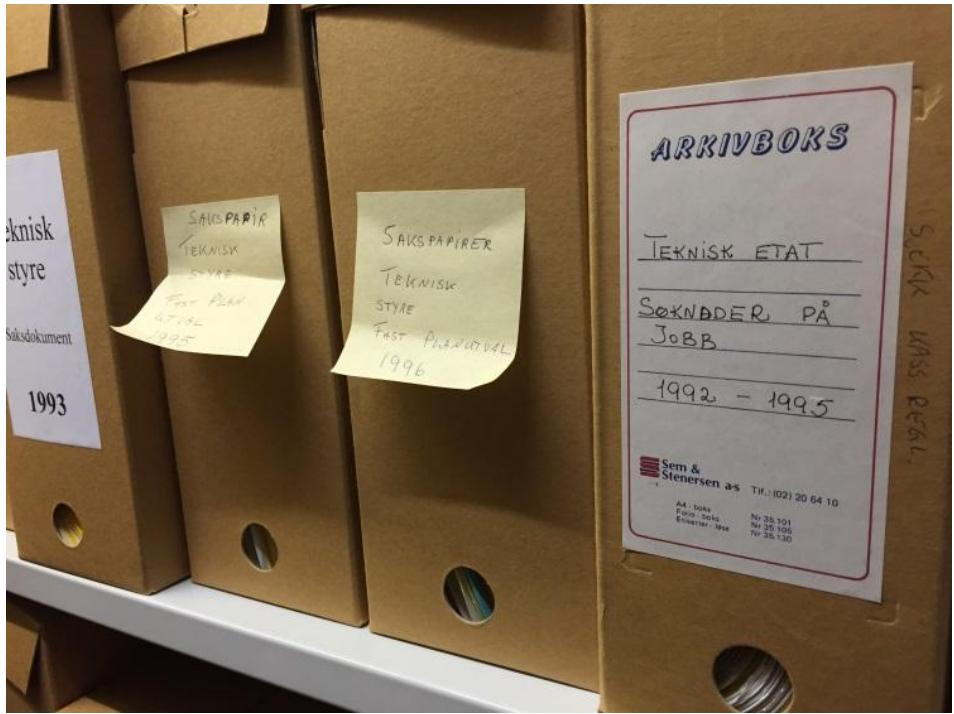 eknisk
styre
Saksdokument
1993
SAKSPAPIR
TEKNISK
STYRE
FAST PLAN
UTVAL
1995
SAKSPAPIRER
TEKNISK
STYRE
FAST PLANUTVAL
1996
ARKIVBOKS
TEKNISK ETAT
SØKNADER PÅ
JOBB
1992 - 1995
Sem &
Stenersen a·s Tlf.: (02) 20 64 10
A4 - boks Nr 35.101
Folio - boks Nr 35.105
Nr 35.130
KASS REGL.